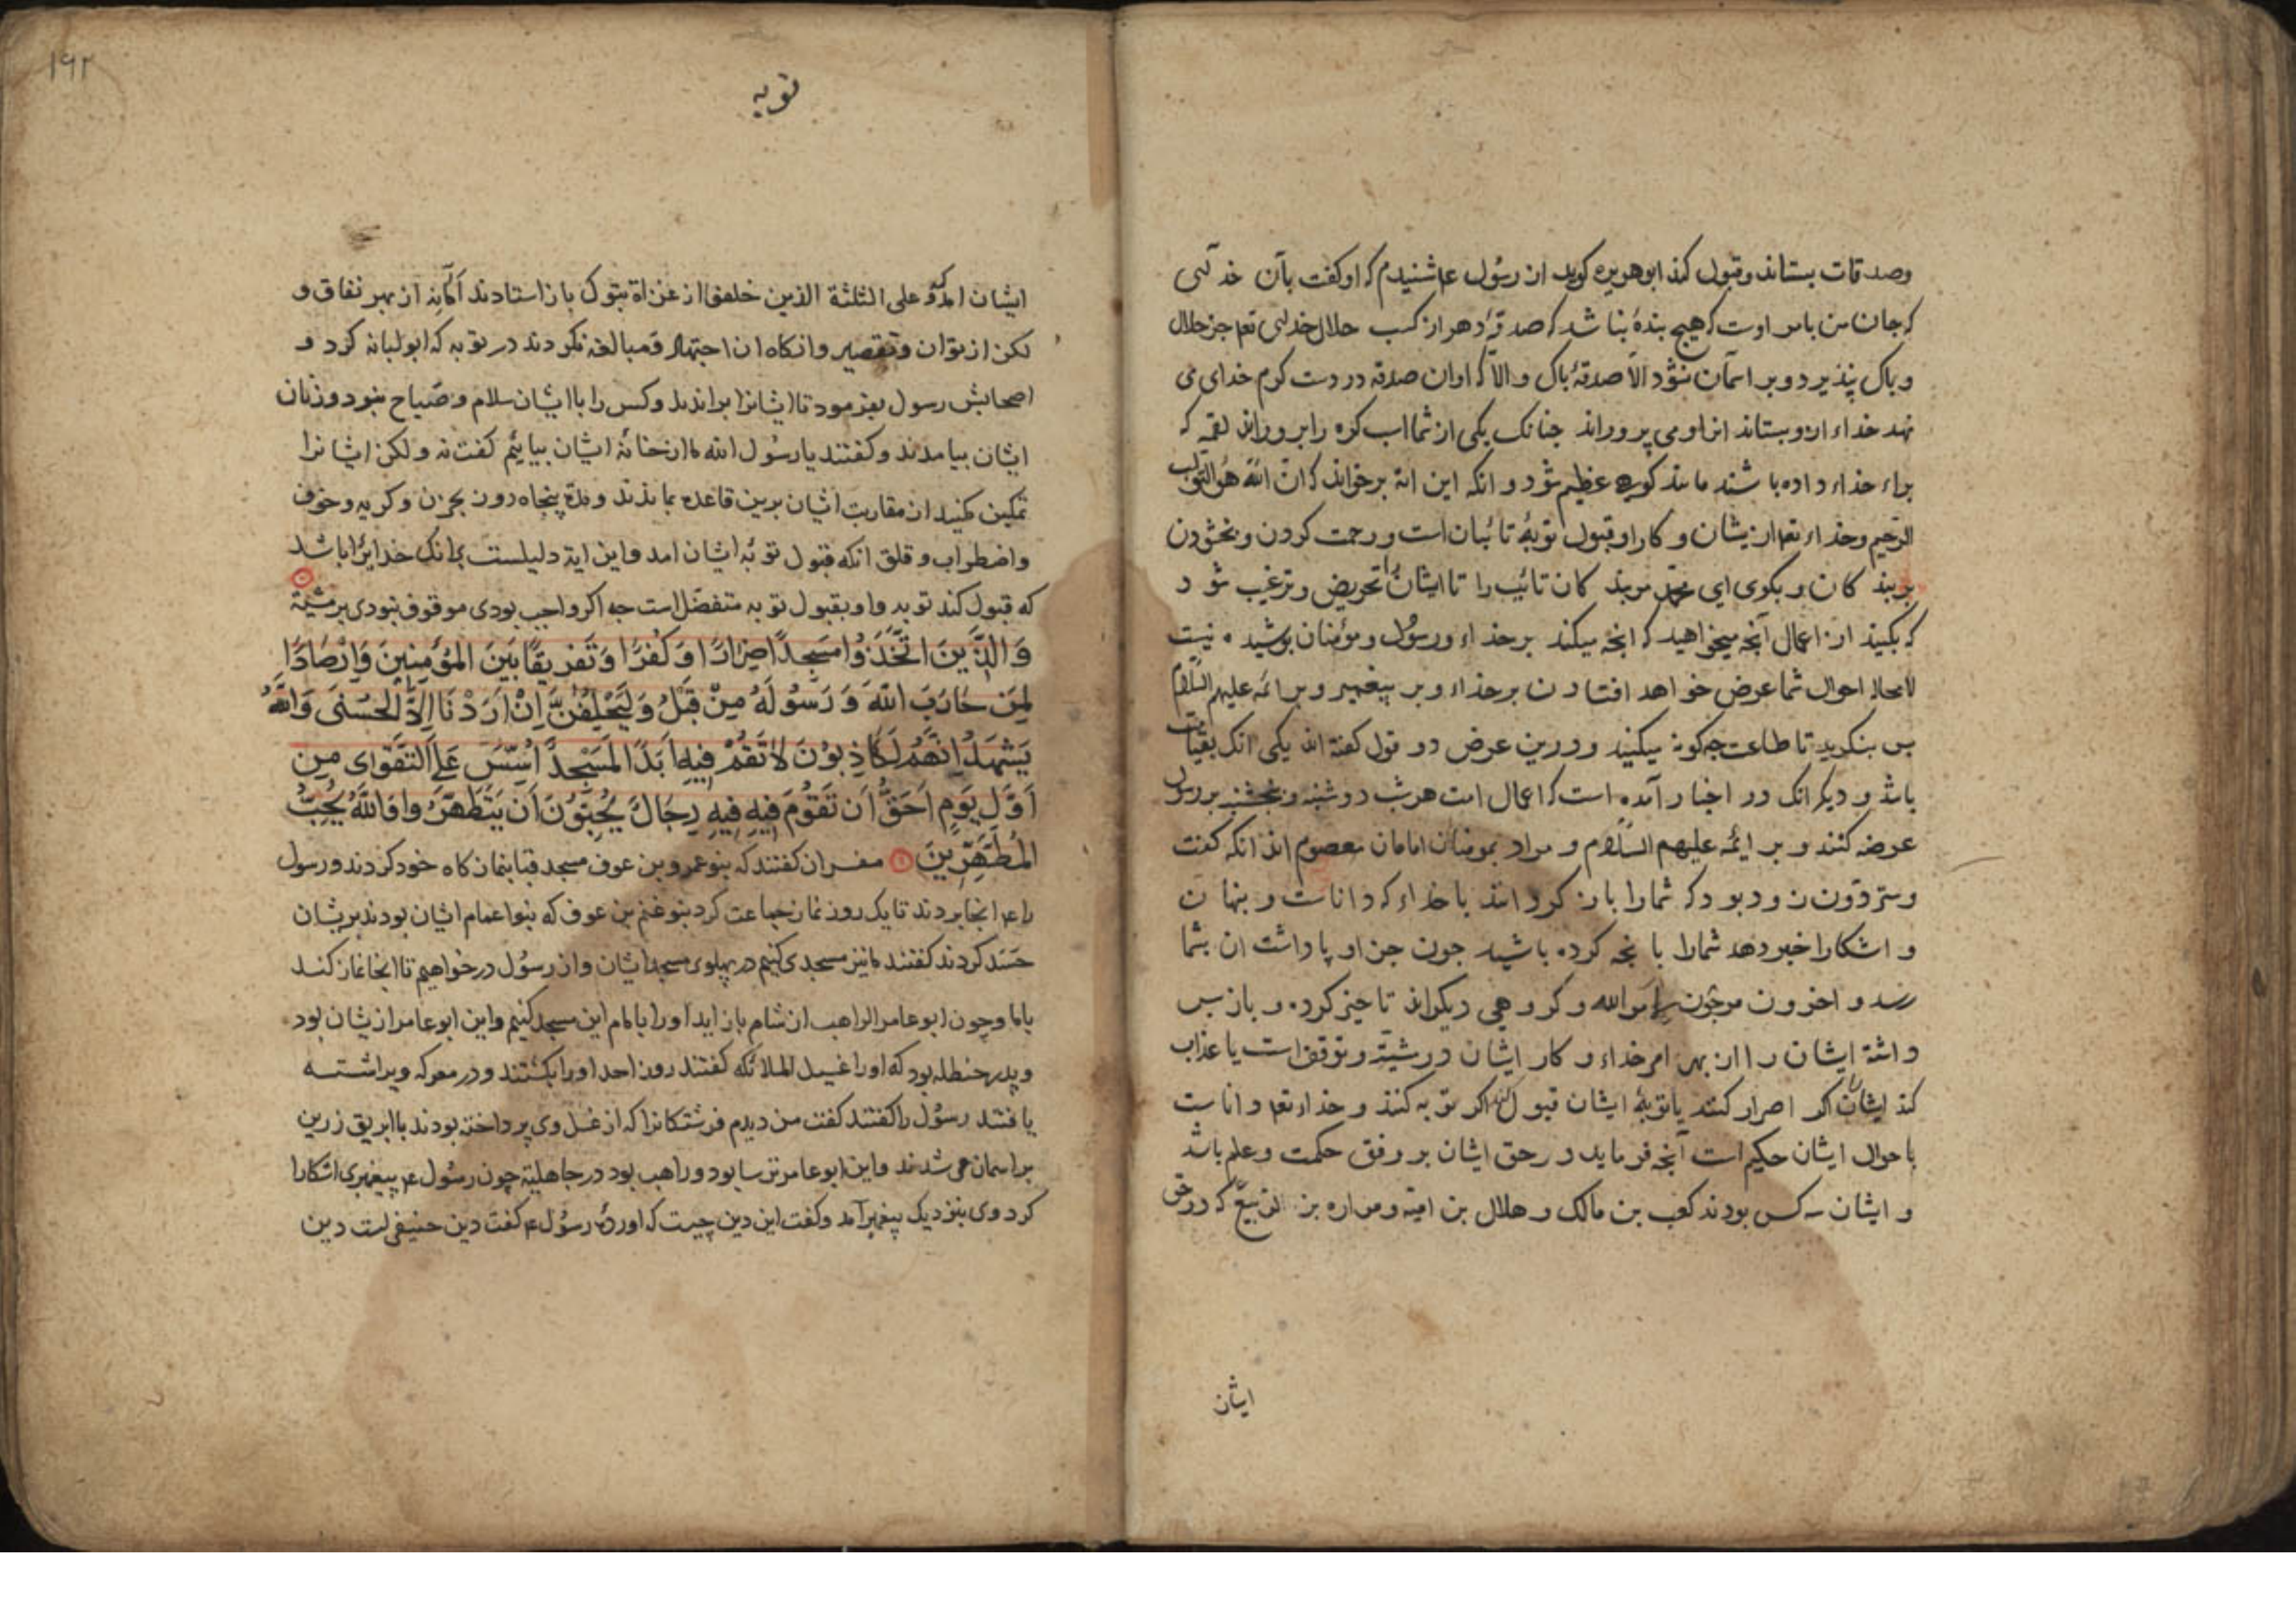 وصدقات بستاند وقبول کند ابوهریره کوید از رسول ع شنیدم که او کفت بآن خدائی
که جان من بامر اوست که هیچ بندهٔ نباشد که صدقهٔ دهد از کسب حلال خدای تع جز حلال
و پاک نپذیرد و بر اسمان نشود الا صدقهٔ پاک و الا که او ان صدقه در دست کرم خدای می
نهد خداء ازو بستاند از او می پروراند جنانک یکی از شما اسب کره را بروراند لقمهٔ که
براء خداء داده باشند مانند کوه عظیم شود و انکه این ایة برخواند که ان الله هو التواب
الرحیم وخداء تع از یشان و کار او قبول توبهٔ تائبان است و رحمت کردن و بخشودن
بر بند کان و بکوی ای محمد مر بند کان تائب را تا ایشان را تحریض و ترغیب شود
که بکنید از اعمال آنجه میخواهید که انجه میکند بر خداء و رسول و مؤمنان پوشیده نیست
لامحاله احوال شما عرض خواهد افتادن بر خداء و بر پیغمبر و بر ائمه علیهم السلام
بس بنکرید تا طاعت جکونه میکنید و درین عرض دو قول کفته اند یکی انک بقیامت
باشد و دیکر انک در اخبار آمده است که اعمال امت هر شب دوشنبه و پنجشنبه بر رسول
عرضه کنند و بر ایمٔه علیهم السلام و مراد بمومنان امامان معصوم اند انکه کفت
وستردون زود بود که شما را باز کردانند با خداء که داناست و بنهان
و اشکارا خبر دهد شمارا بانجه کرده باشید جون جزا و پاداشت ان بشما
رسد و اخرون مرجون لامرالله و کروهی دیکراند تاخیر کرده و باز بس
داشته ایشان را از بهر امر خداء و کار ایشان در مشیّة و توقف است یا عذاب
کند ایشان را اکر اصرار کنند یا توبهٔ ایشان قبول کند اکر توبه کنند و خداء تع داناست
باحوال ایشان حکیم است آنجه فرماید در حق ایشان بر وفق حکمت وعلم باشد
و ایشان سه کس بودند کعب بن مالک و هلال بن امیة و مراره بن الربیع که در حق
ایشان
۱۹۲
توبه
ایشان امد و علی الثلثة الذین خلفوا از غزاة تبوک باز استادند اما نه از بهر نفاق و
لکن از توان و تقصیر وانکاه ان اجتهاد و مبالغه نکردند در توبه که ابولبانه کرد و
اصحابش رسول بفرمود تا ایشانرا براندند وکس را با ایشان سلام و صباح نبود وزنان
ایشان بیامدند و کفتند یا رسول الله ما از خانهٔ ایشان بیائیم کفت نه ولکن ایشانرا
تمکین مکنید از مقاربت ایشان برین قاعده بماندند ومدة پنجاه روز بحزن وکریه وخوف
واضطراب و قلق انکه قبول توبهٔ ایشان امد واین ایة دلیلست بر انک خدایرا باشد
که قبول کند توبه و او بقبول توبه متفضل است جه اکر واجب بودی موقوف نبودی بر مشیّة
وَالَّذِینَ اتَّخَذُوا مَسْجِدًا ضِرَارًا وَکُفْرًا وَتَفْرِیقًا بَیْنَ الْمُؤْمِنِینَ وَاِرْصَادًا
لِمَنْ حَارَبَ اللهَ وَرَسُولَهُ مِنْ قَبْلُ وَلَیَحْلِفُنَّ اِنْ اَرَدْنَا اِلَّا الْحُسْنَی وَاللهُ
یَشْهَدُ اِنَّهُمْ لَکَاذِبُونَ لَا تَقُمْ فِیهِ اَبَدًا لَمَسْجِدٌ اُسِّسَ عَلَی التَّقْوٰای مِنْ
اَوَّلِ یَوْمٍ اَحَقُّ اَنْ تَقُومَ فِیهِ فِیهِ رِجَالٌ یُحِبُّونَ اَنْ یَتَطَهَّرُوا وَاللهُ یُحِبُّ
الْمُطَّهِّرِینَ مفسران کفتند که بنو عمرو بن عوف مسجد قبا بنماز کاه خود کردند و رسول
را ع انجا بردند تا یک روز نماز جماعت کرد بنو غنم بن عوف که بنو اعمام ایشان بودند بریشان
حسد کردند کفتند ما نیز مسجدی کنیم در پهلوی مسجد ایشان واز رسول درخواهیم تا انجا نماز کند
باما وچون ابو عامر الراهب از شام باز اید اورا بامام این مسجد کنیم واین ابوعامر ازیشان بود
وپدر حنظله بود که اورا غسیل الملائکه کفتند روز احد اورا بکشتند و در معرکه ویرا شسته
یافتند رسول را کفتند کفت من دیدم فرشتکانرا که از غسل وی پرداخته بودند با ابریق زرین
بر اسمان می شدند واین ابوعامر ترسا بود و راهب بود در جاهلیة چون رسول ع پیغمبری اشکارا
کرد وی بنزدیک پیغمبر آمد وکفت این دین چیست که اوردهٔ رسول ع کفت دین حنیفی است دین